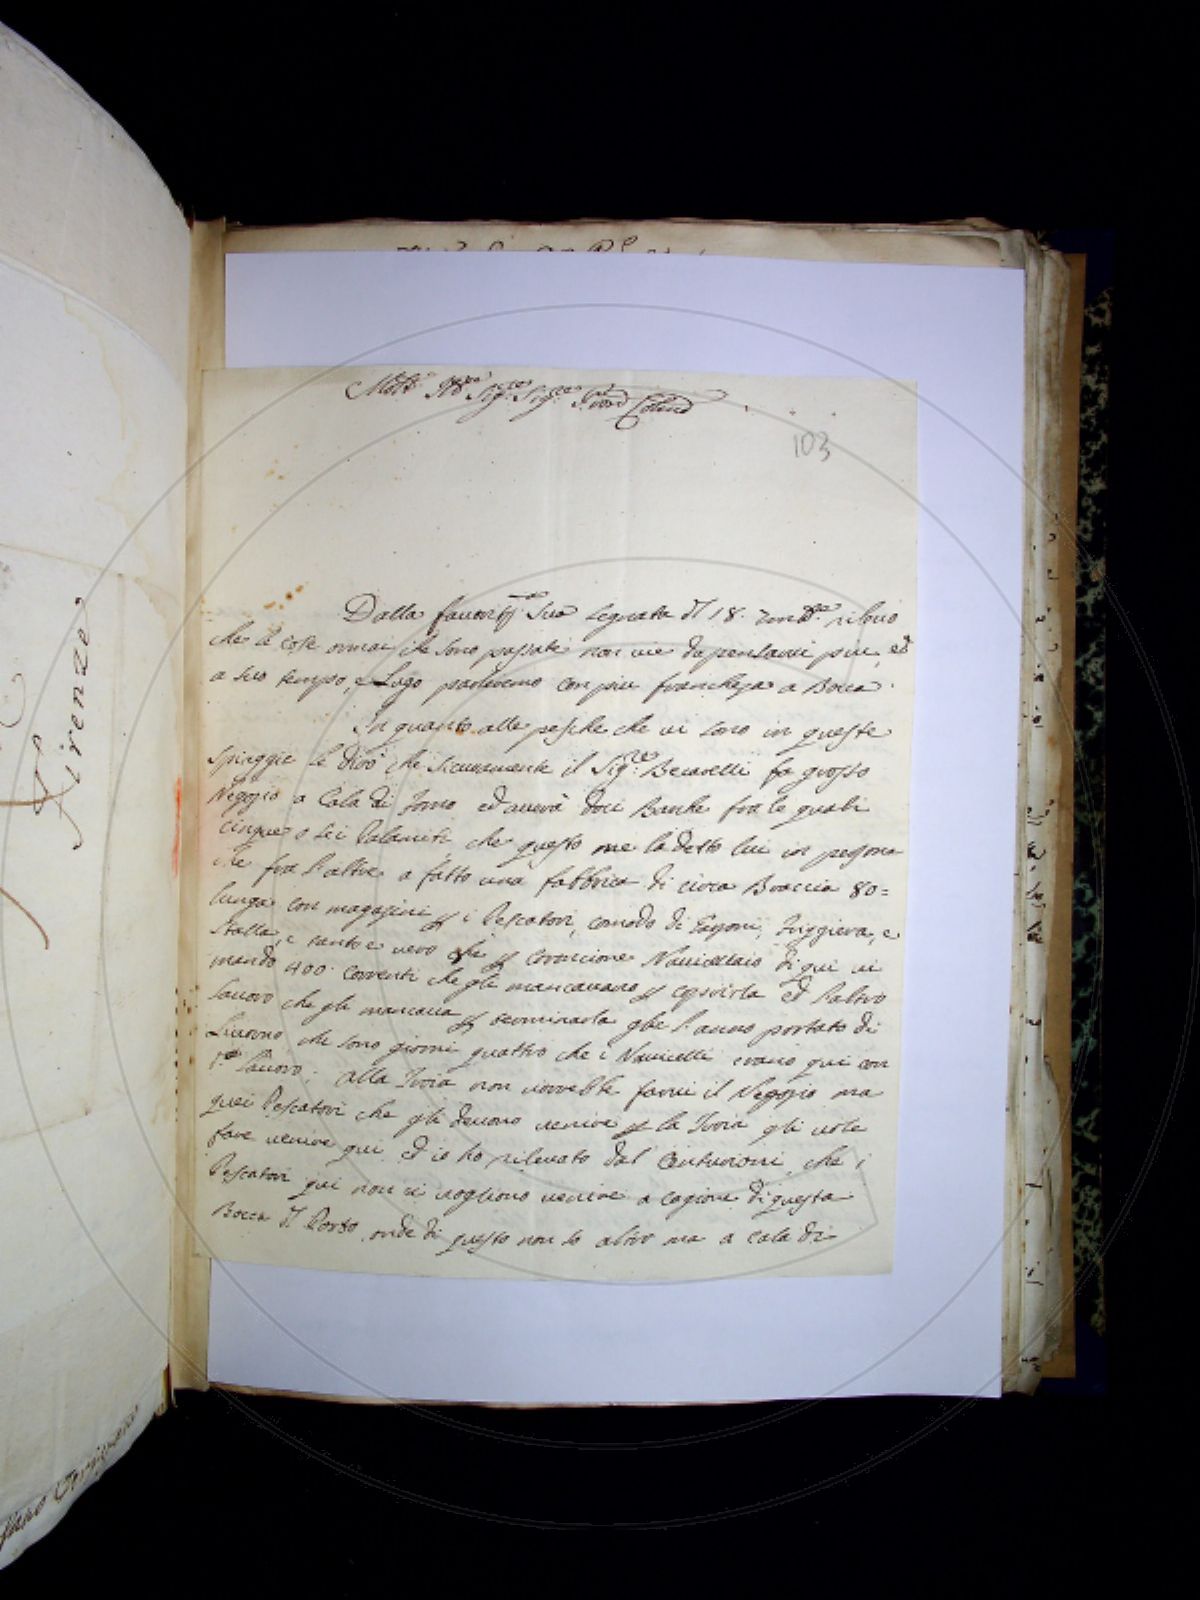 Firenze
Molt. Ill.re Sig.re Sig.re P.ron Col.mo
103
Dalla favoritis.ma Sua segnata il 18. rilevo
che le cose ormai che sono passate non vie da pensarvi piu, ed
a suo tempo, e Logo parleremo con piu franchezza a Bocca.
In quanto alle pesche che vi sono in queste
spiaggie Le dirò che sicuramente il Sig.re Becarelli fa grosso
Negozio a Cala di Forno ed averà dodici Barche fra le quali
cinque o sei Palamiti che questo me la detto lui in persona
che fra l'altre a fatto una fabbrica di circa Braccia 80=
lunga con magazini p i Pescatori, comodo di Friggiera, e
stalla, e tanto e vero che p Navicellaio di qui vi
mando 400 Correnti che gli mancavano p coprirla ed l'altro
lavoro che gli mancava p terminarla glie l'anno portato di
Livorno che sono giorni quattro che i Navicelli erano qui con
d.o Lavoro; alla Troia non vorrebbe farvi il Negozio ma
quei Pescatori che gli devono venire p la Troia gli vole
fare venire qui, ed io ho rilevato dal Centurioni che i
Pescatori qui non ci vogliono venire a cagione di questa
Bocca di Porto, onde di questo non so altro ma a Cala di